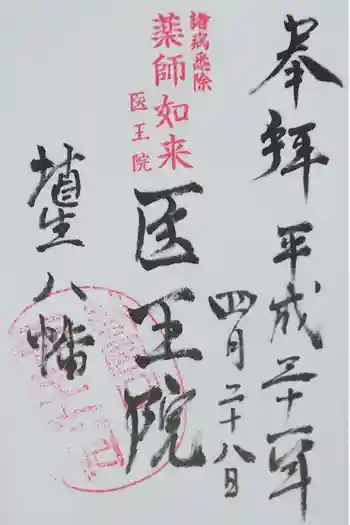 奉拝
平成二十一年
四月二十八日
諸病悉除
薬師如来
医王院
医王院
埴生八幡